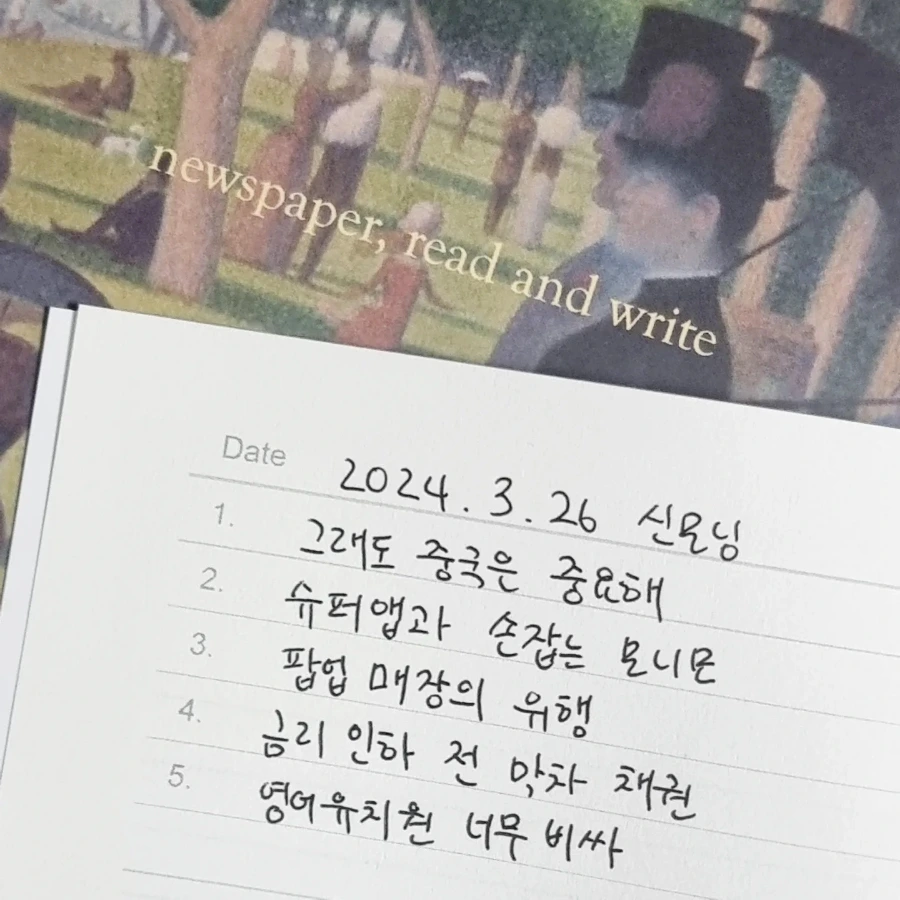 a newspaper, read and write
Date 2024.3.26 신문님
1. 그래도 중국은 중요해
2. 슈퍼앱과 손잡는 모니모
3. 팝업 매장의 위행
4. 금리 인하 전 막차 채권
5. 영어유치원 너무 비싸